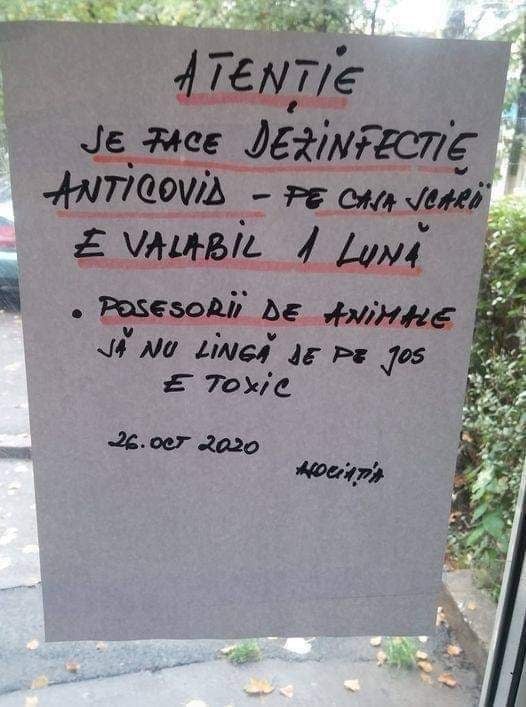 ATENȚIE
SE FACE DEZINFECTIE
ANTICOVID - PE CASA SCĂRII
E VALABIL 1 LUNĂ
• POSESORII DE ANIMALE
SĂ NU LINGĂ DE PE JOS
E TOXIC
26. OCT 2020
ASOCIAȚIA